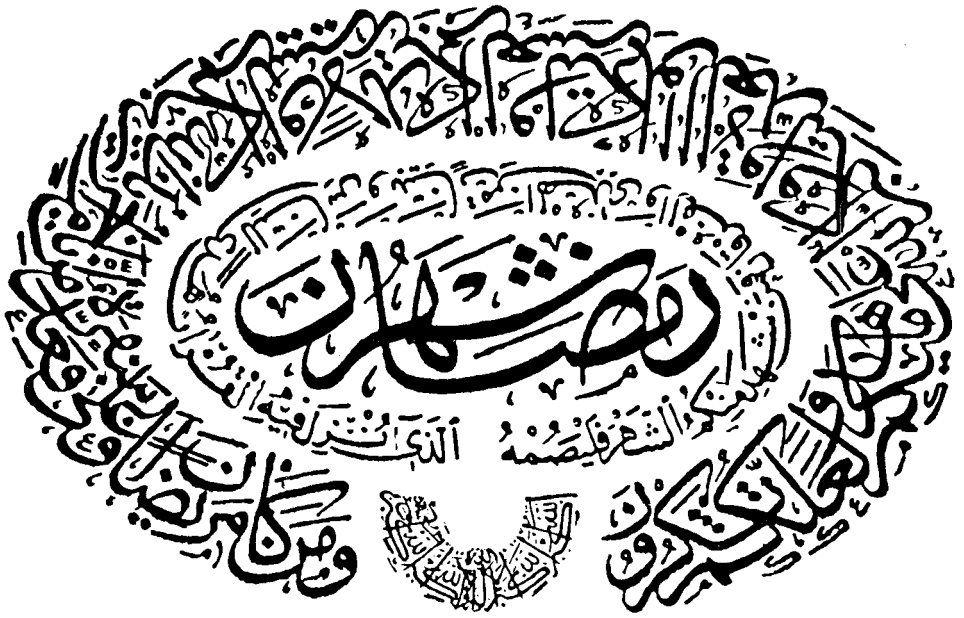 شَهْرُ رَمَضَانَ
الَّذِي أُنْزِلَ فِيهِ الْقُرْآنُ هُدًى لِلنَّاسِ وَبَيِّنَاتٍ مِنَ الْهُدَى وَالْفُرْقَانِ فَمَنْ شَهِدَ مِنْكُمُ الشَّهْرَ فَلْيَصُمْهُ
وَمَنْ كَانَ مَرِيضًا أَوْ عَلَى سَفَرٍ فَعِدَّةٌ مِنْ أَيَّامٍ أُخَرَ يُرِيدُ اللَّهُ بِكُمُ الْيُسْرَ وَلَا يُرِيدُ بِكُمُ الْعُسْرَ وَلِتُكْمِلُوا الْعِدَّةَ وَلِتُكَبِّرُوا اللَّهَ عَلَى مَا هَدَاكُمْ وَلَعَلَّكُمْ تَشْكُرُونَ